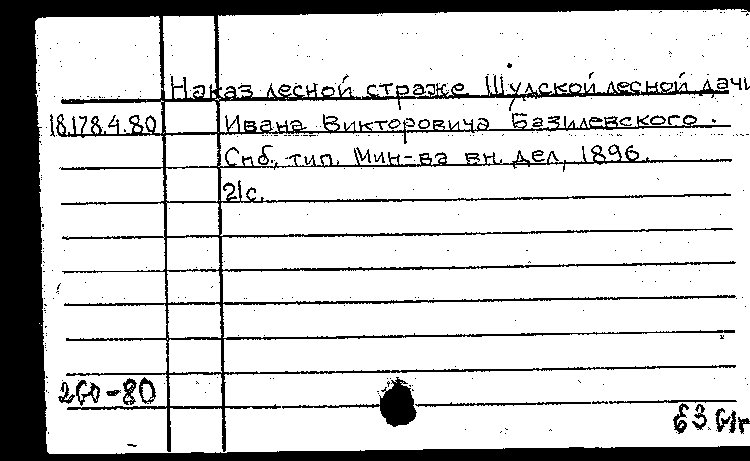 Наказ лесной страже Шудской лесной дачи
18.178.4.80 Ивана Викторовича Базилевского.
Спб., тип. Мин-ва вн. дел, 1896.
21с.
260-80